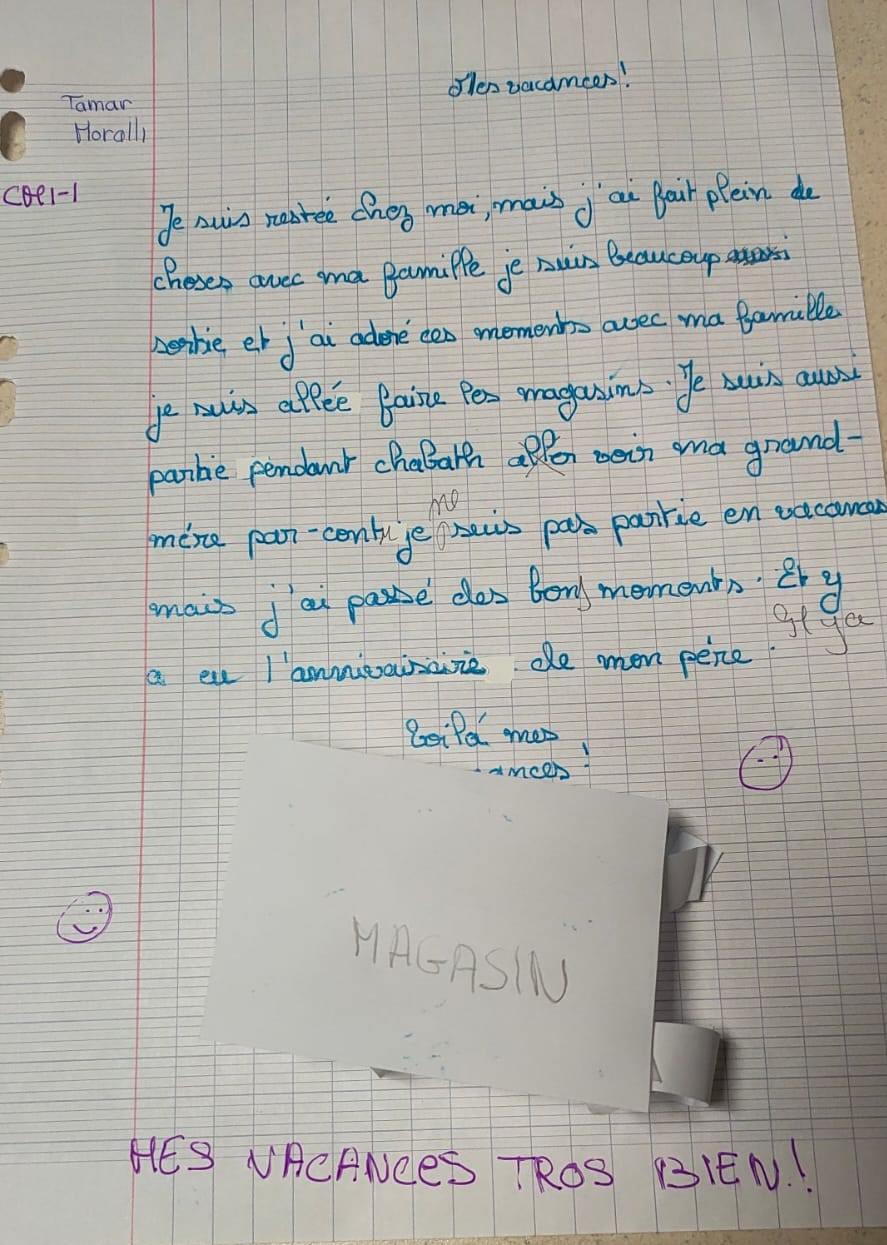 Mes vacances!
Tamar
Moralli
Je suis restée chez moi, mais j'ai fait plein de
choses avec ma famille je suis beaucoup
sortie et j'ai adoré ces moments avec ma famille
je suis allée faire les magasins. Je suis aussi
partie pendant chabath aller voir ma grand-
mére par-contre je ne suis pas partie en vacances
mais j'ai passé des bons moments. Et y
Il y a
a eu l'annivairsairie de mon pére.
Voilá mes
ances!
MAGASIN
MES VACANCES TROS BIEN!